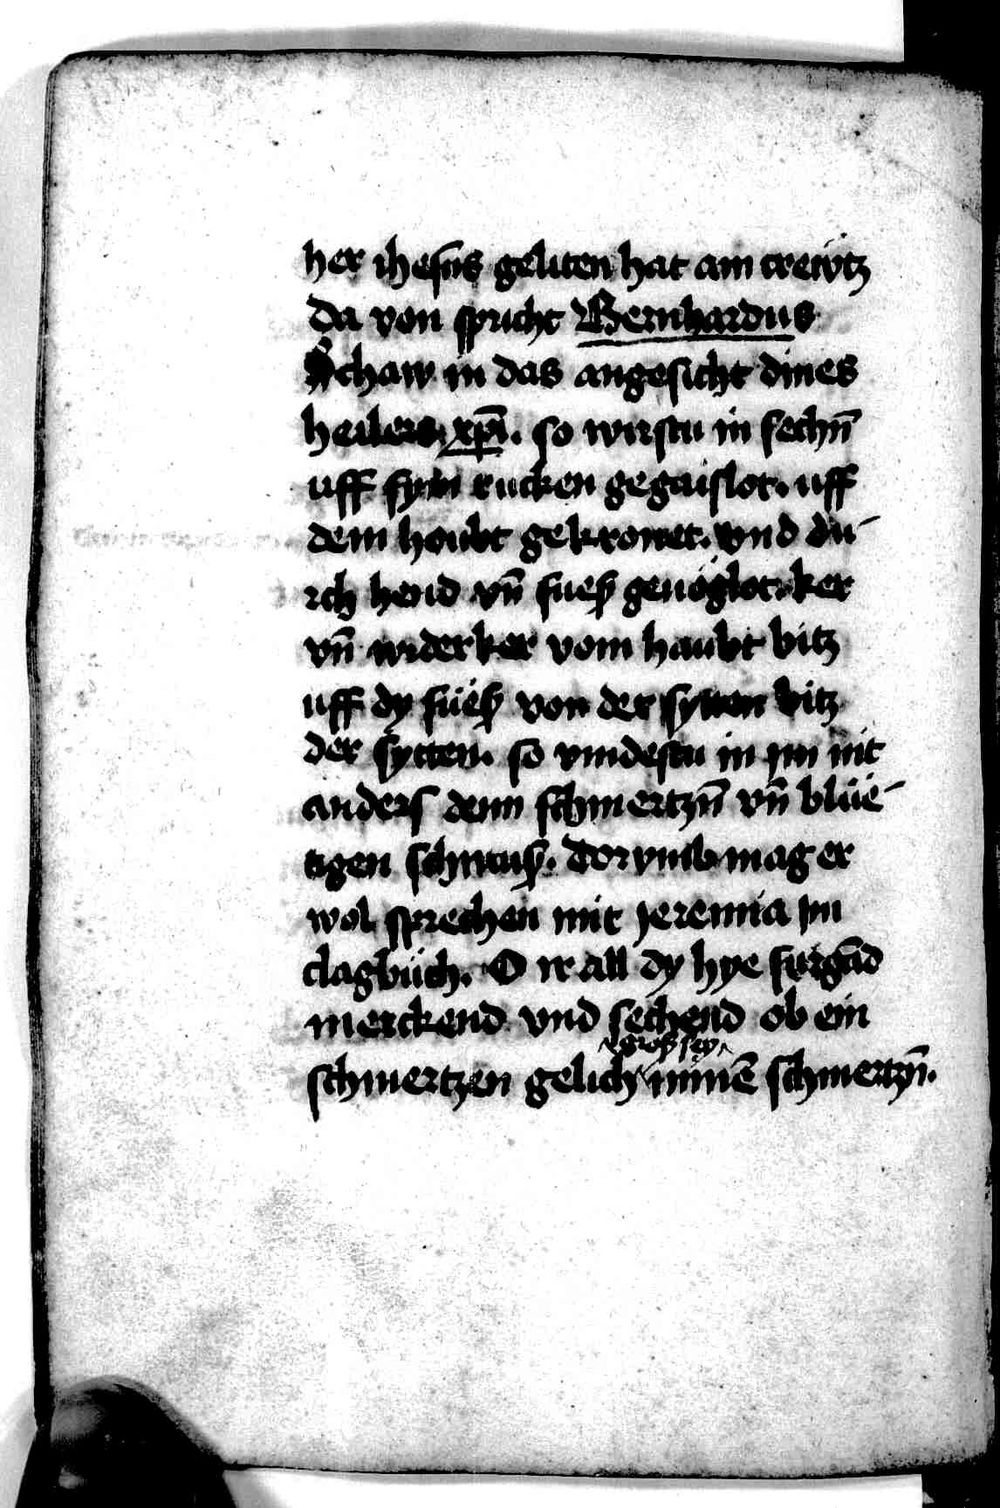 her ihesus geliten hat am creẅtz
da von spricht Bernhardus
Schaw in das angesicht dines
heilers xp̄i. so wirstu in sechn̄
uff sym rucken gegaislot. uff
dem houbt gekronet. vnd du-
rch hend vn̄ fueß genöglot. ker
vn̄ widerker vom haubt bitz
uff dy füeß von der sytten bitz
der sytten. so vindestu in im nit
anders denn schmertzn̄ vn̄ blüe-
tigen schwuß. dorvmb mag er
wol sprechen mit jeremia im
clagbüch. O ir all dy hye furgād
merckend vnd sechend ob ein
groß sey
schmertzen gelich minē schmertzn̄.